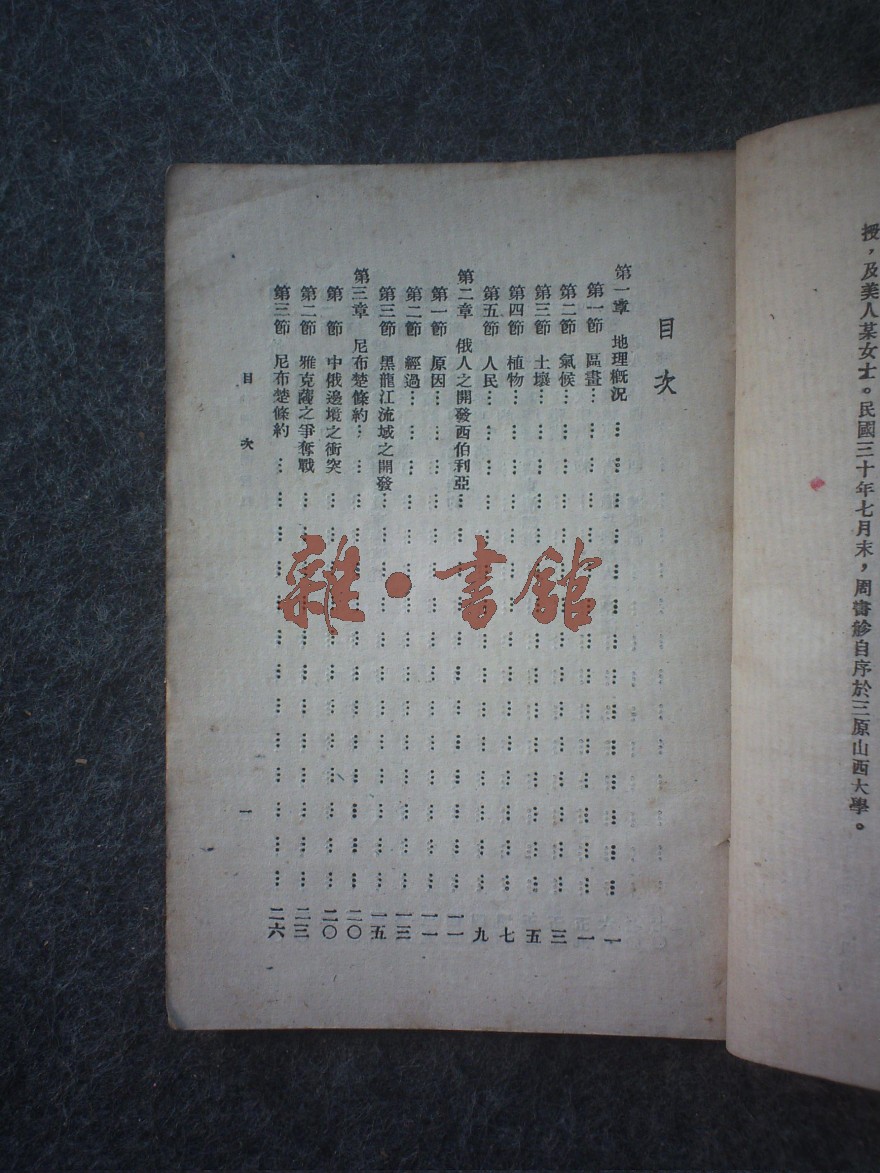 授，及美人某女士。民國三十年七月末，周書舲自序於三原山西大學。
目次
第一章 地理概況…………一
第一節 區畫…………一
第二節 氣候…………三
第三節 土壤…………五
第四節 植物…………七
第五節 人民…………九
第二章 俄人之開發西伯利亞…………一一
第一節 原因…………一一
第二節 經過…………一三
第三節 黑龍江流域之開發…………一五
第三章 尼布楚條約…………二〇
第一節 中俄邊境之衝突…………二〇
第二節 雅克薩之爭奪戰…………二三
第三節 尼布楚條約…………二六
目次 一
雜·書館